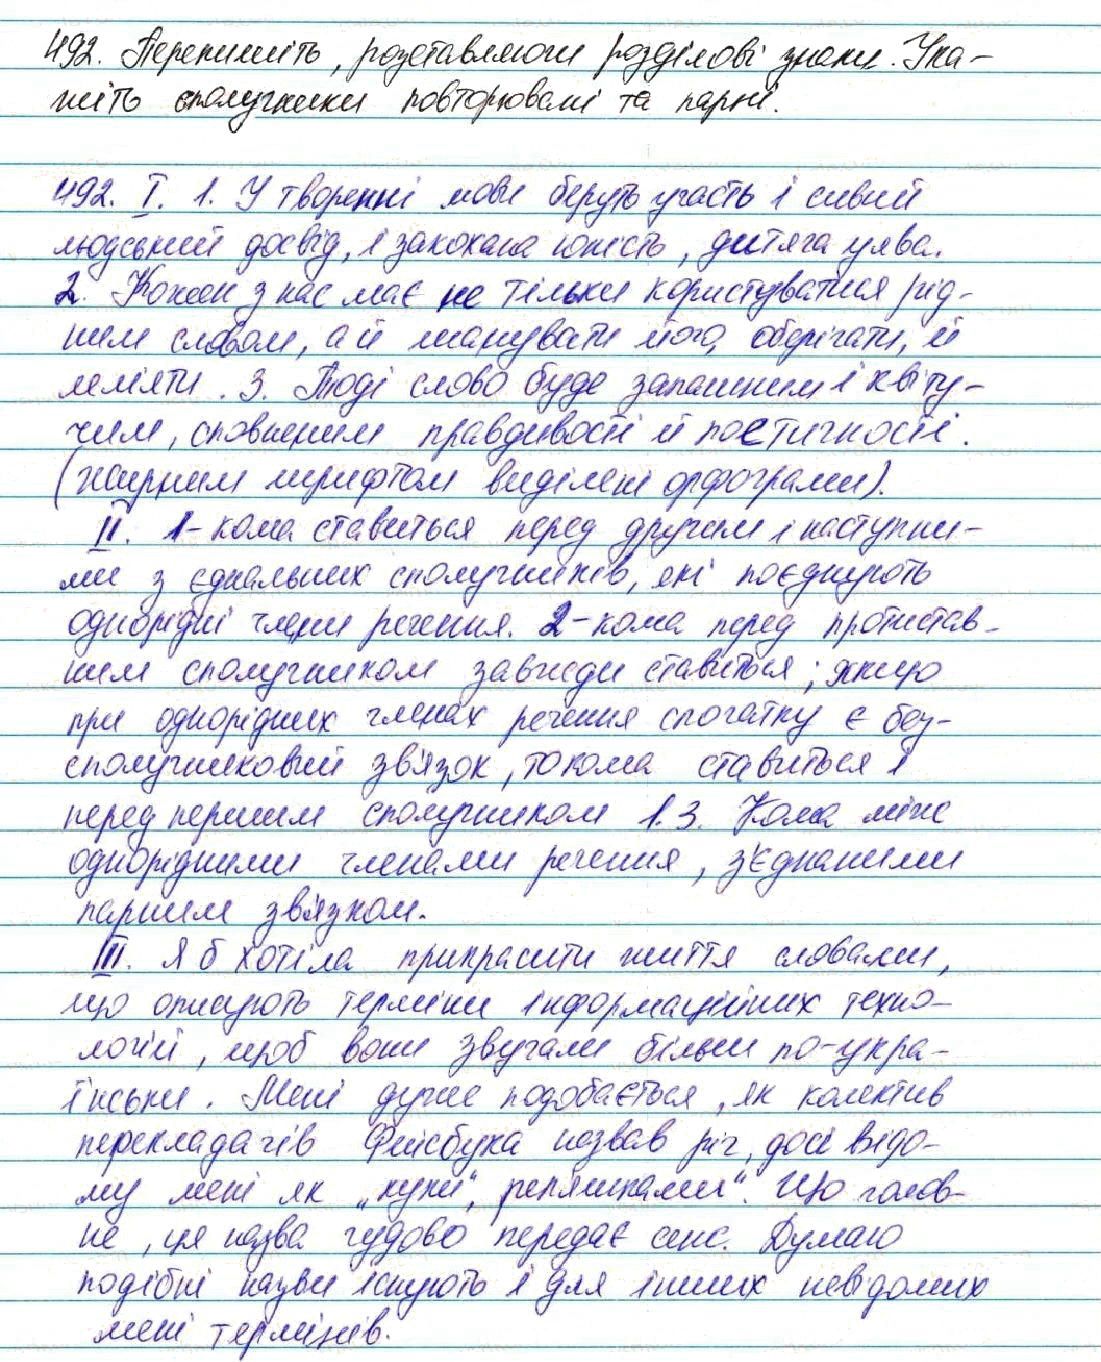 492. Перепишіть, розставляючи розділові знаки. Ука-
жіть сполучники повторювані та парні.
492. І. 1. У творенні мови беруть участь і сивий
людський досвід, і закохана юність, дитяча уява.
2. Кожен з нас має не тільки користуватися рід-
ним словом, а й шанувати його, оберігати, й
леліяти. 3. Тоді слово буде запашним і квіту-
чим, сповненим правдивості й поетичності.
(жирним шрифтом виділені орфограми).
ІІ. 1-кома ставиться перед другим і наступни-
ми з єднальних сполучників, які поєднують
однорідні члени речення. 2-кома перед протистав-
ним сполучником завжди ставиться; якщо
при однорідних членах речення спочатку є без-
сполучниковий зв'язок, то кома ставиться і
перед першим сполучником і. 3. Кома між
однорідними членами речення, з'єднаними
парним зв'язком.
ІІІ. Я б хотіла прикрасити життя словами,
що описують терміни інформаційних техно-
логій, щоб вони звучали більш по-укра-
їнськи. Мені дуже подобається, як колектив
перекладачів Фейсбука назвав річ, досі відо-
му мені як „куки", „реп'яшками". Що голов-
не, ця назва чудово передає сенс. Думаю
подібні назви існують і для інших невідомих
мені термінів.